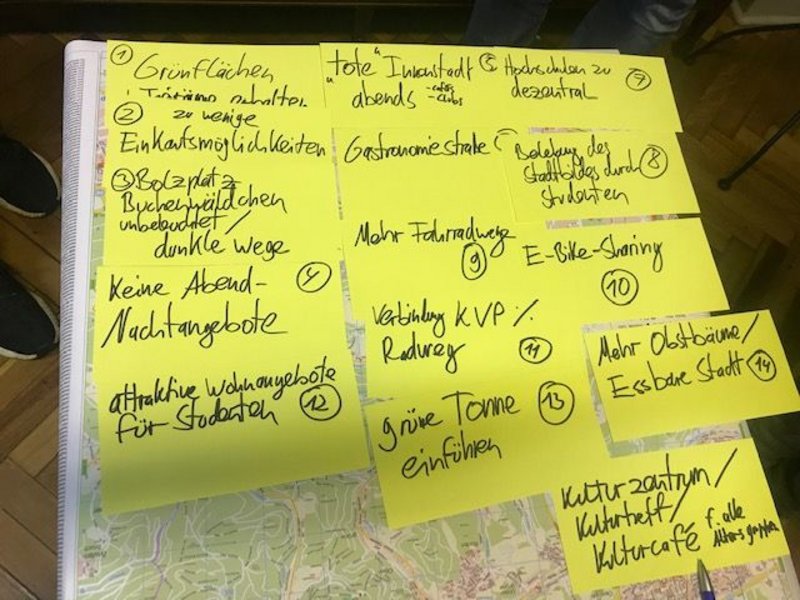 1
Grünflächen
erhalten
2 zu wenige
Einkaufsmöglichkeiten
3 Bolzplatz
Buchenwäldchen
unbeleuchtet/
dunkle Wege
Keine Abend- 4
Nachtangebote
attraktive Wohnangebote
für Studenten 12
"tote" Innenstadt 5
abends - Cafés
- Clubs
Gastronomiestraße
Hochschulen zu 7
dezentral
Belebung des
Stadtbildes durch 8
Studenten
Mehr Fahrradwege
9
E-Bike-Sharing
10
Verbindung KVP %
Radweg 11
grüne Tonne 13
einführen
Mehr Obstbäume/
Essbare Stadt 14
Kulturzentrum/
Kulturtreff/
Kulturcafé f. alle
Altersgruppen